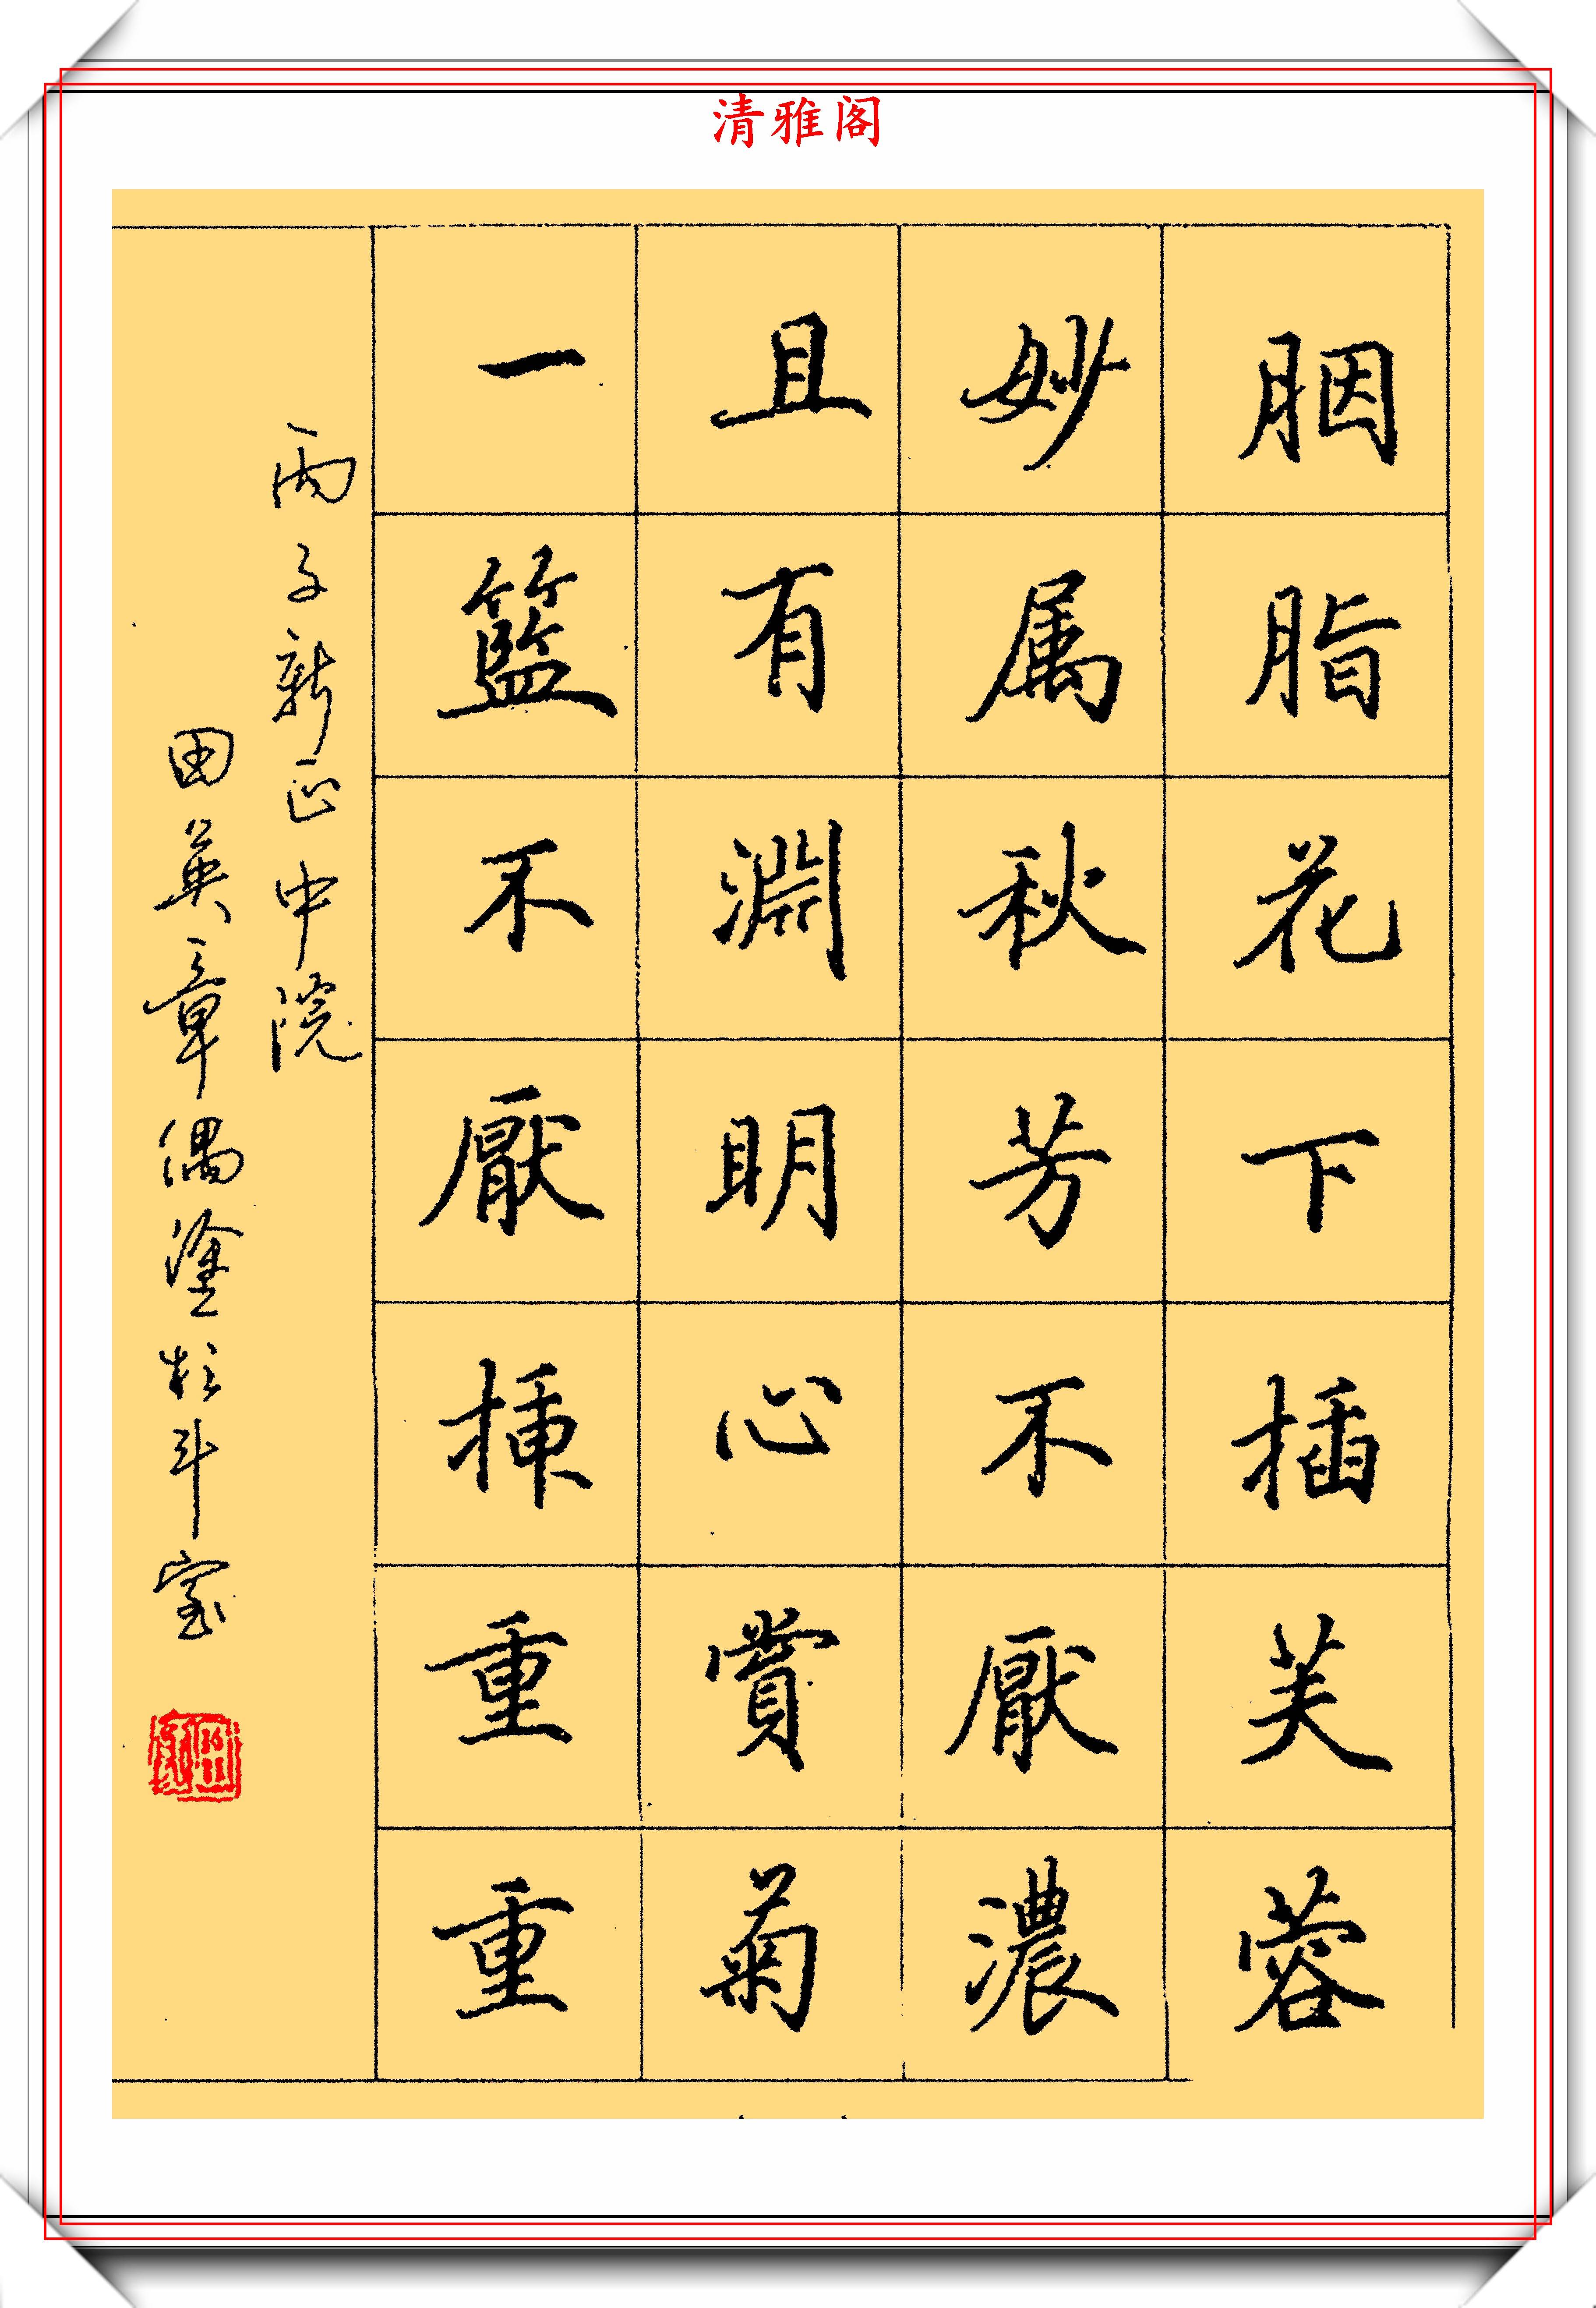 清雅阁
胭脂花下插芙蓉
妙属秋芳不厭濃
且有淵明心賞菊
一籃不厭挿重重
丙子新正中院
田英章偶塗於斗室